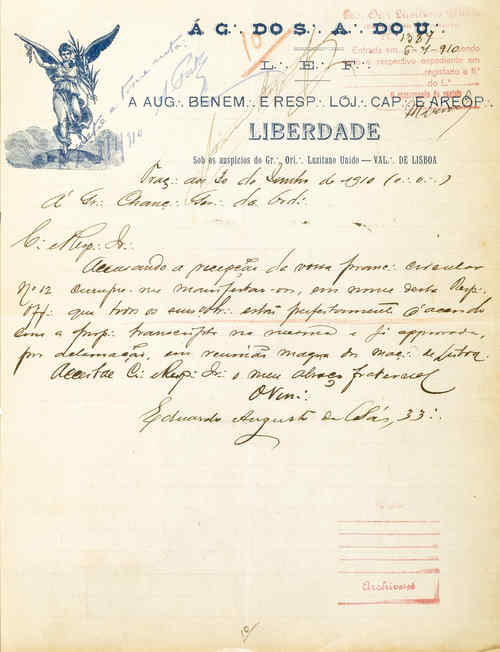 Á G∴ DO S∴ A∴ DO U∴
L∴ E∴ F∴
A AUG∴ BENEM∴ E RESP∴ LOJ∴ CAP∴ E AREOP∴
LIBERDADE
Sob os auspicios do Gr∴ Ori∴ Luzitano Unido — VAL∴ DE LISBOA
Gr∴ Ori∴ Luzitano Unido
1387
Entrada em 6-7-910 tendo
o respectivo expediente em
registario a fl.
do L.º
Traç∴ aos 30 de Junho de 1910 (e∴ v∴)
Á Gr∴ Chanc∴ Ger∴ da Ord∴
C∴ e Resp∴ Ir∴
Accusando a recepção da vossa pranc∴ circular
Nº 12 cumpre-me manifestar-vos, em nome desta Resp∴
Off∴ que todos os seus obr∴ estão perfeitamente d'accordo
com a prop∴ transcripta na mesma e já approvada,
por aclamação, em reunião magna dos maç∴ de Lisboa.
Acceitae C∴ e Resp∴ Ir∴ o meu abraço fraternal
O Ven∴
Eduardo Augusto da 33∴
Archive-se